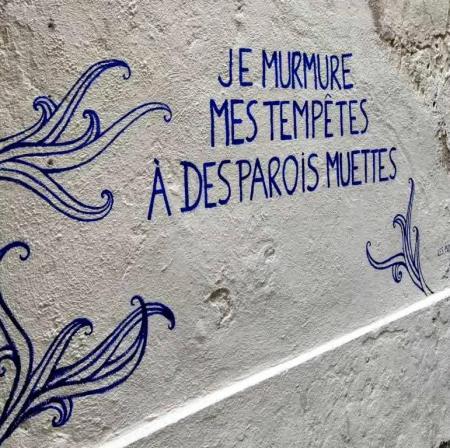 JE MURMURE
MES TEMPÊTES
À DES PAROIS MUETTES